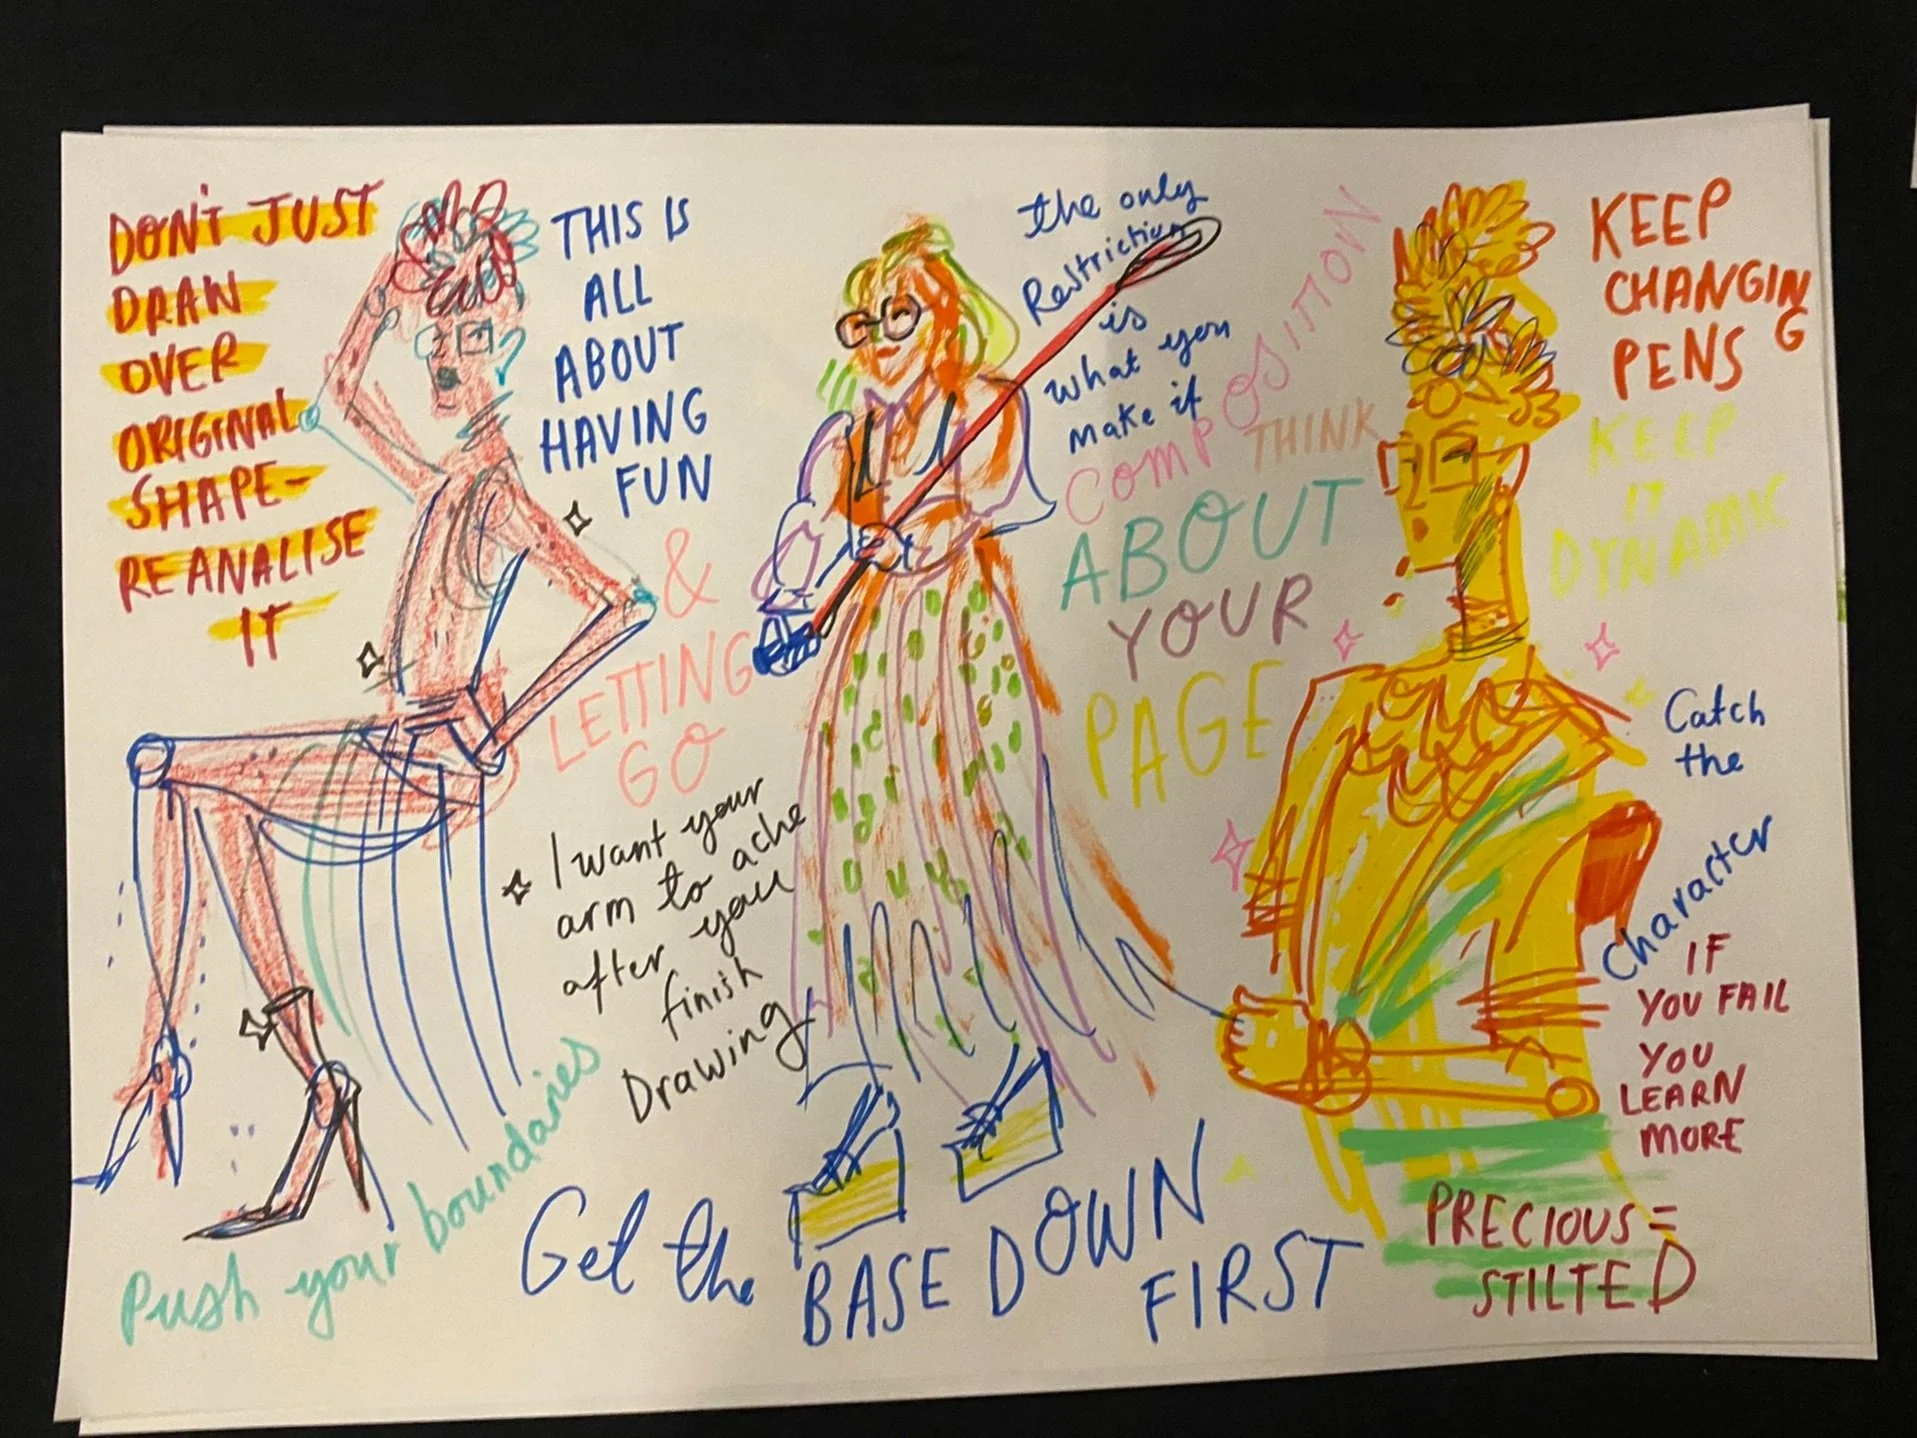 DON'T JUST
DRAW
OVER
ORIGINAL
SHAPE-
REANALISE
IT
THIS IS
ALL
ABOUT
HAVING
FUN
&
LETTING
GO
I want your
arm to ache
after you
finish
Drawing
Push your boundaries
the only
Restriction
is
what you
make it
COMPOSITION
THINK
ABOUT
YOUR
PAGE
Get the BASE DOWN
FIRST
KEEP
CHANGING
PENS
KEEP
IT
DYNAMIC
Catch
the
Character
IF
YOU FAIL
YOU
LEARN
MORE
PRECIOUS =
STILTED